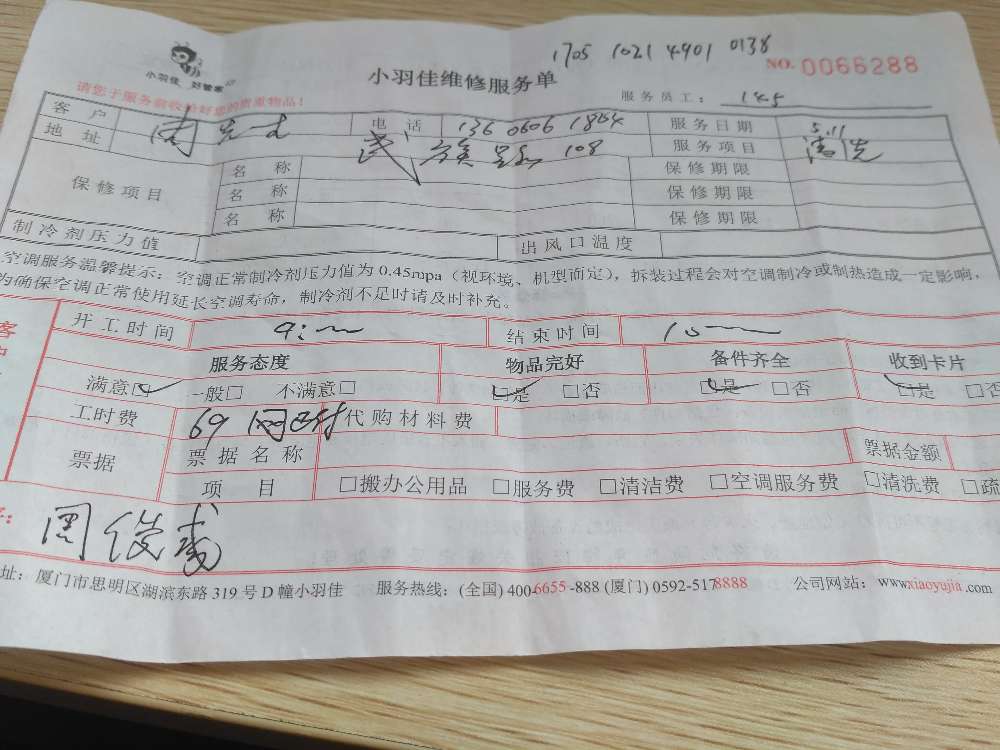 1705 1021 4901 0138
小羽佳 好管家
小羽佳维修服务单
NO. 0066288
请您于服务前收拾好您的贵重物品!
服务员工: 145
客户 周先生 电话 136 0606 1864 服务日期 5.11
地址 108 服务项目 清洗
保修项目 名称 保修期限
名称 保修期限
名称 保修期限
制冷剂压力值 出风口温度
空调服务温馨提示: 空调正常制冷剂压力值为0.45mpa(视环境、机型而定),拆装过程会对空调制冷或制热造成一定影响,
为确保空调正常使用延长空调寿命,制冷剂不足时请及时补充。
开工时间 9: 结束时间 10
服务态度 物品完好 备件齐全 收到卡片
满意□ 一般□ 不满意□ □是 □否 □是 □否 □是 □否
工时费 69 网已付 代购材料费
票据 票据名称 票据金额
项目 □搬办公用品 □服务费 □清洁费 □空调服务费 □清洗费 □疏
周俊彧
址: 厦门市思明区湖滨东路319号D幢小羽佳 服务热线: (全国) 400-6655-888 (厦门) 0592-5178888 公司网站: www.xiaoyujia.com